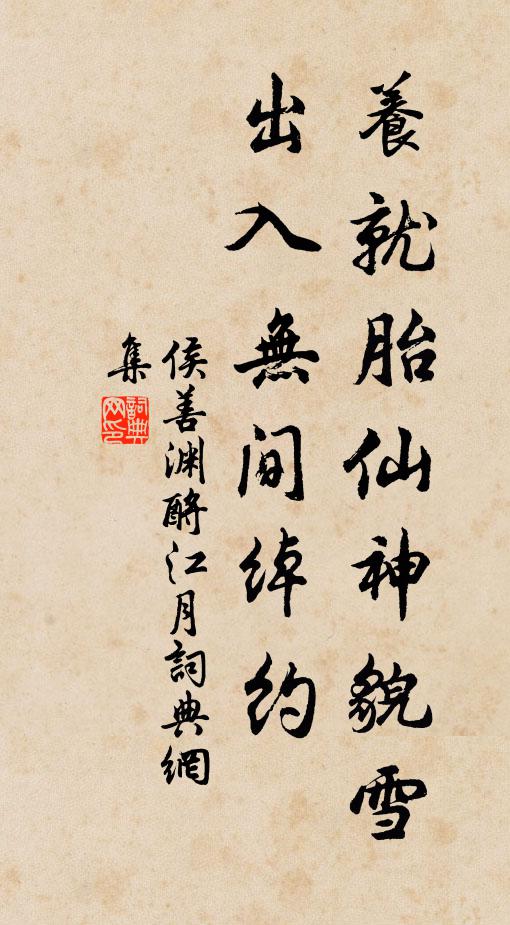 養就胎仙神貌雪
出入無間綽約
侯善渊酹江月詞典網
集
詞典网印